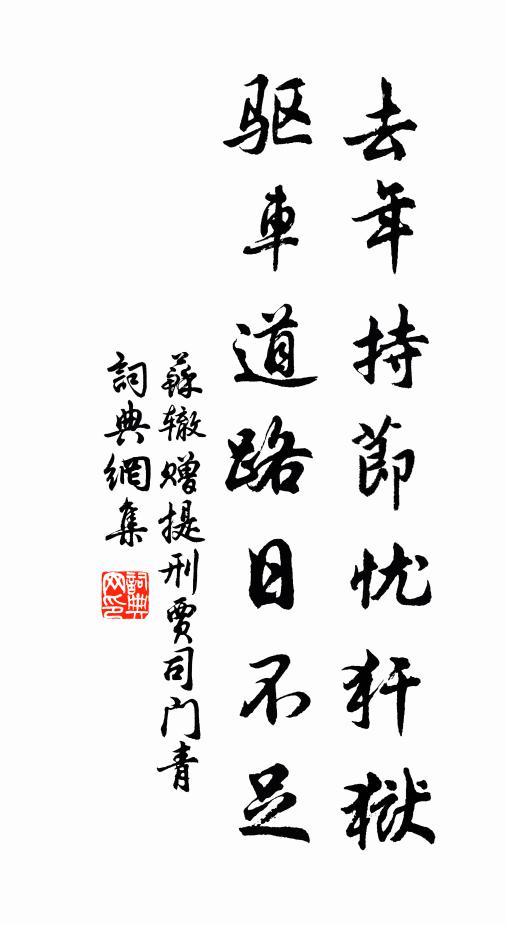 去年持節忧犴獄
驱車道路日不足
蘇辙赠提刑贾司门青
詞典網集
詞典网印